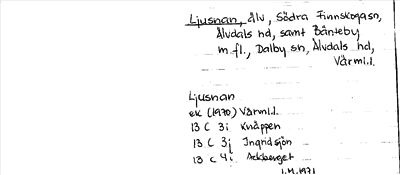 Ljusnan, älv, Södra Finnskoga sn,
Älvdals hd, samt Bänteby
m.fl., Dalby sn, Älvdals hd,
Värml.l.
Ljusnan
ek (1970) Värml.l.
13 C 3i Knappen
13 C 3j Ingridsjön
13 C 4i
I.M. 1971